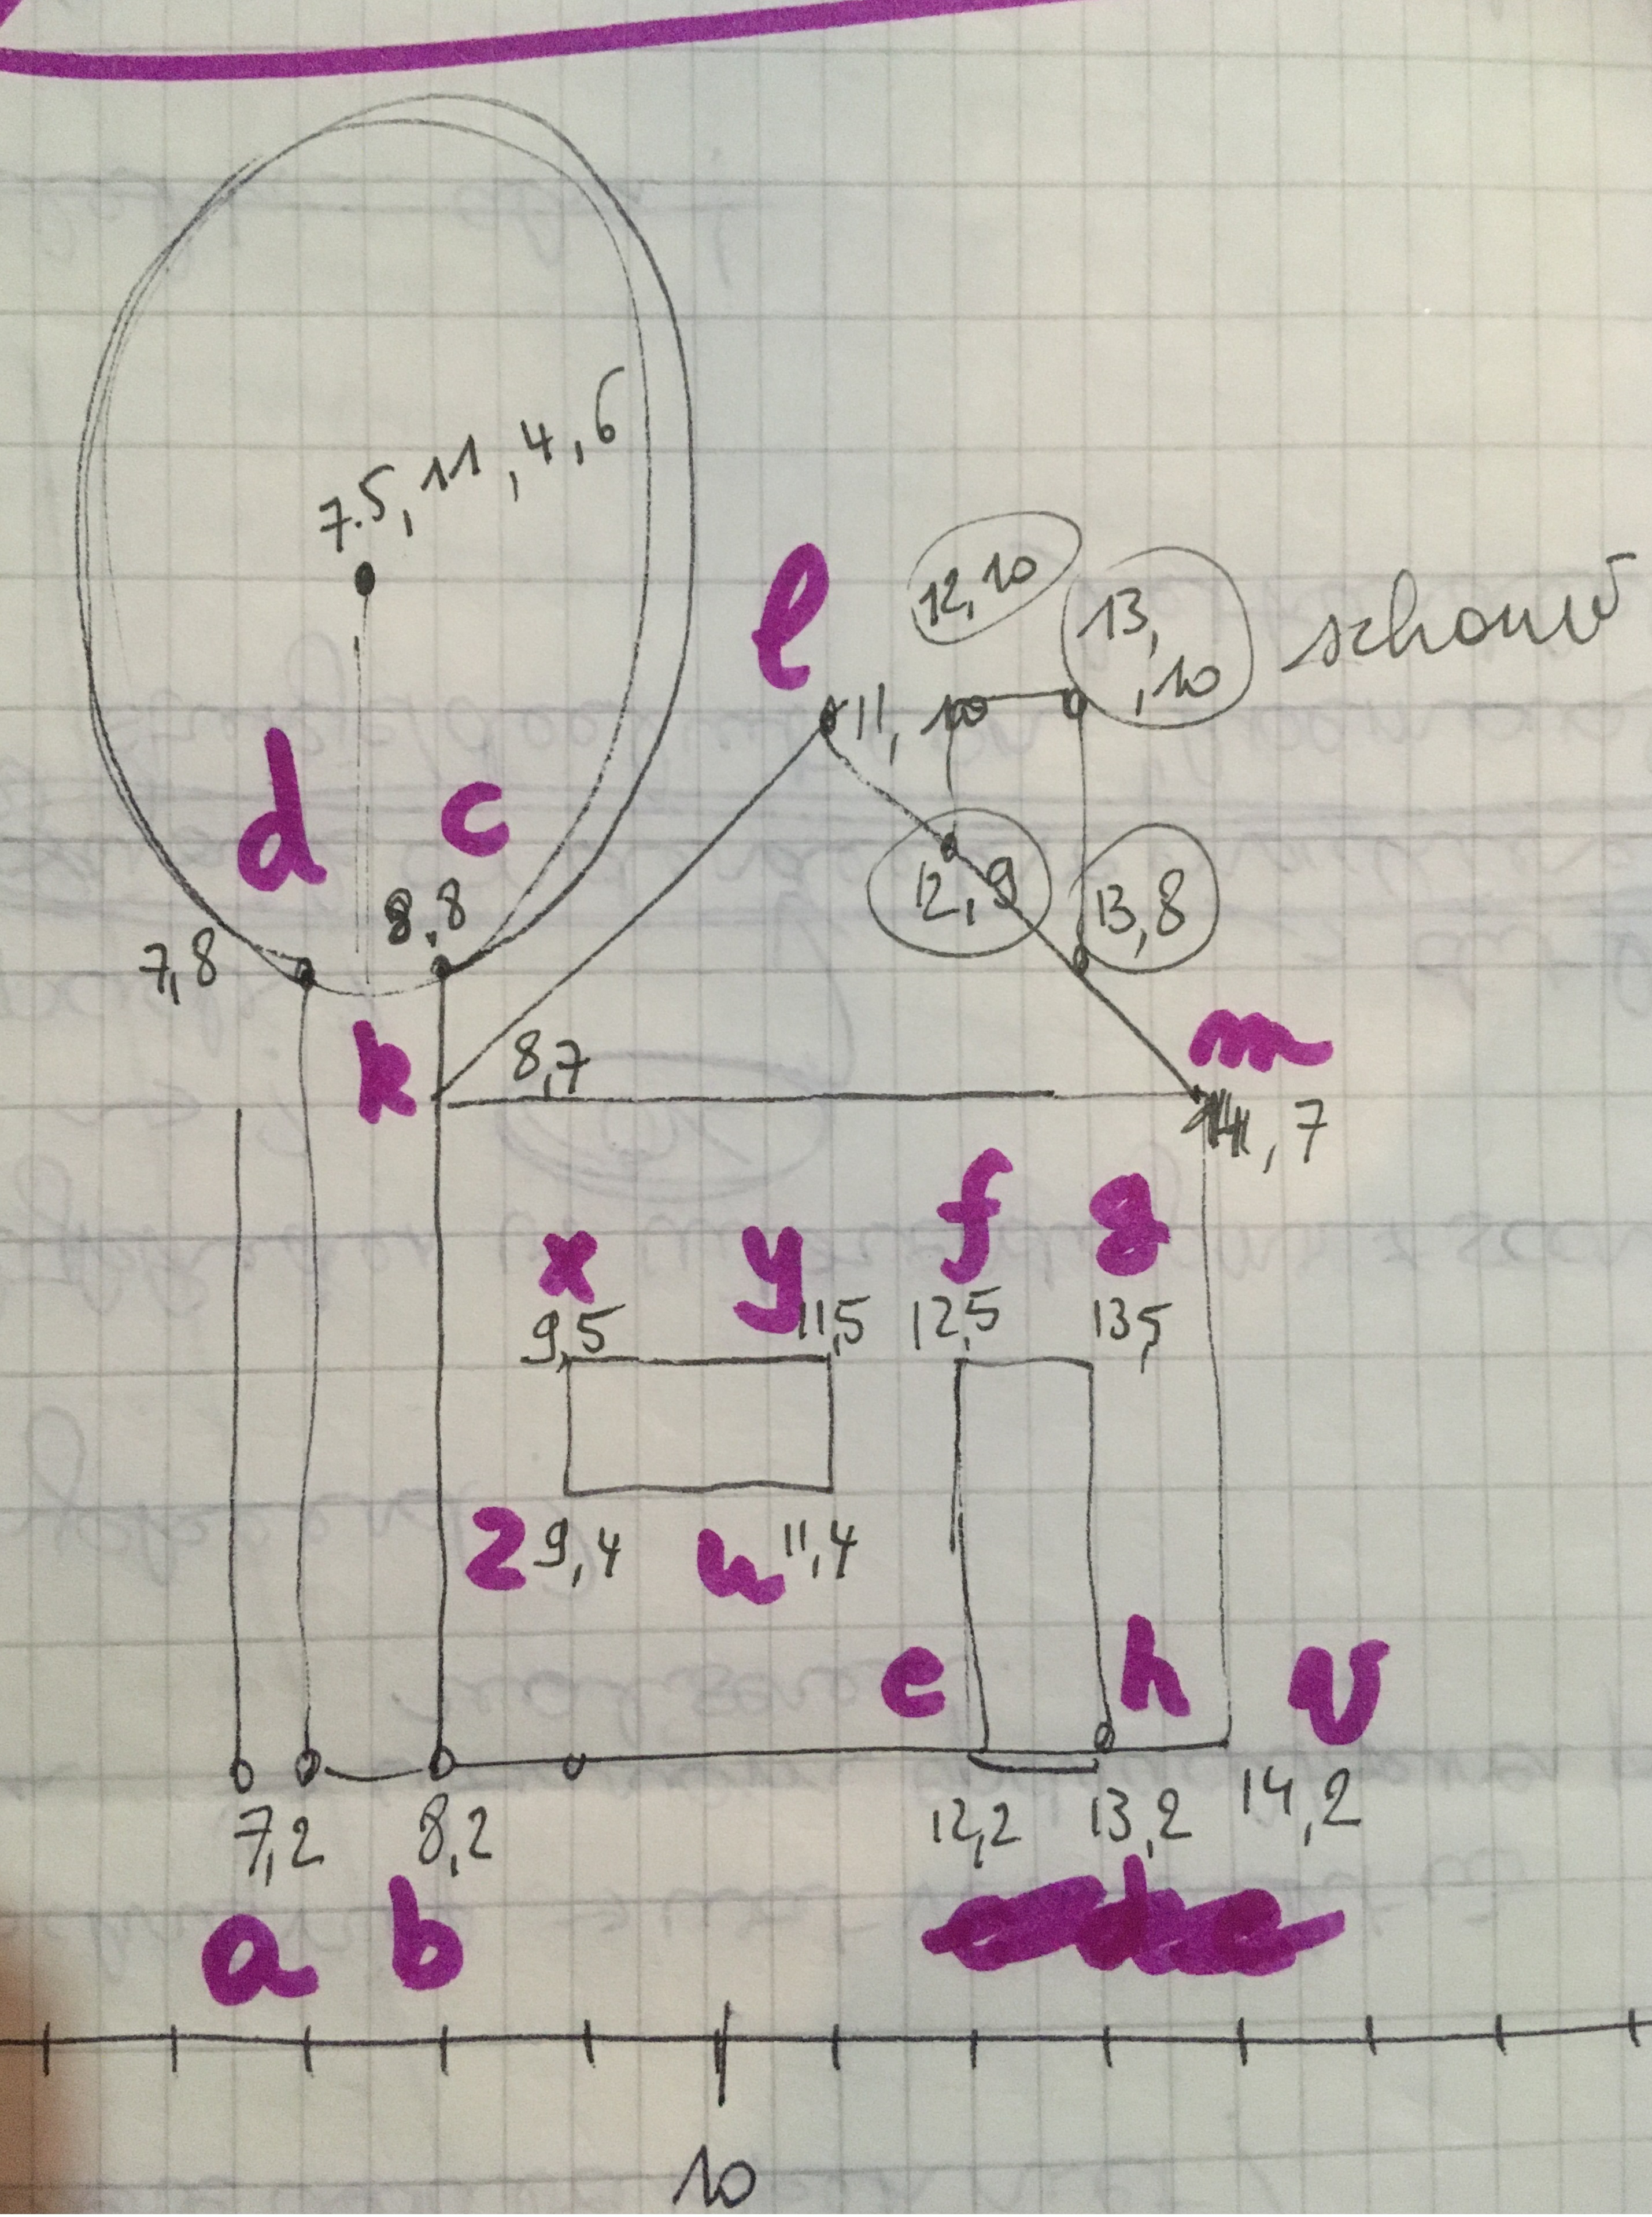 7.5, 11, 4, 6
l
12,10
13,
,10
schouw
11, 10
d
c
8,8
7,8
12,9
13,8
k
8,7
m
14,7
x
y
f
g
9,5
11,5
12,5
13,5
z
9,4
u
11,4
e
h
v
7,2
8,2
12,2
13,2
14,2
a
b
10